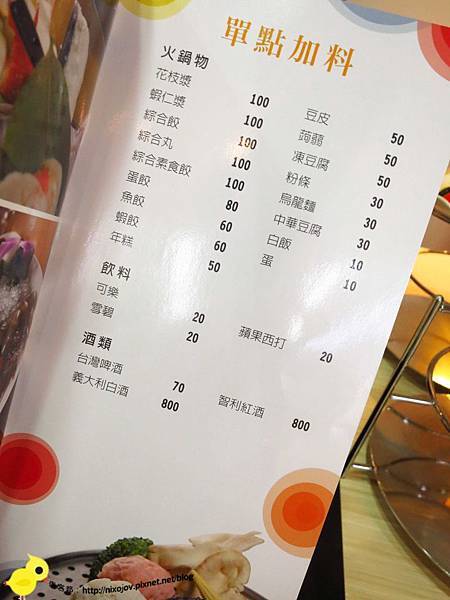 單點加料
火鍋物
花枝漿 100 豆皮 50
蝦仁漿 100 蒟蒻 50
綜合餃 100 凍豆腐 50
綜合丸 100 粉條 30
綜合素食餃 100 烏龍麵 30
蛋餃 80 中華豆腐 30
魚餃 60 白飯 10
蝦餃 60 蛋 10
年糕 50
飲料
可樂 20 蘋果西打 20
雪碧 20
酒類
台灣啤酒 70
義大利白酒 800 智利紅酒 800
http://nixojov.pixnet.net/blog